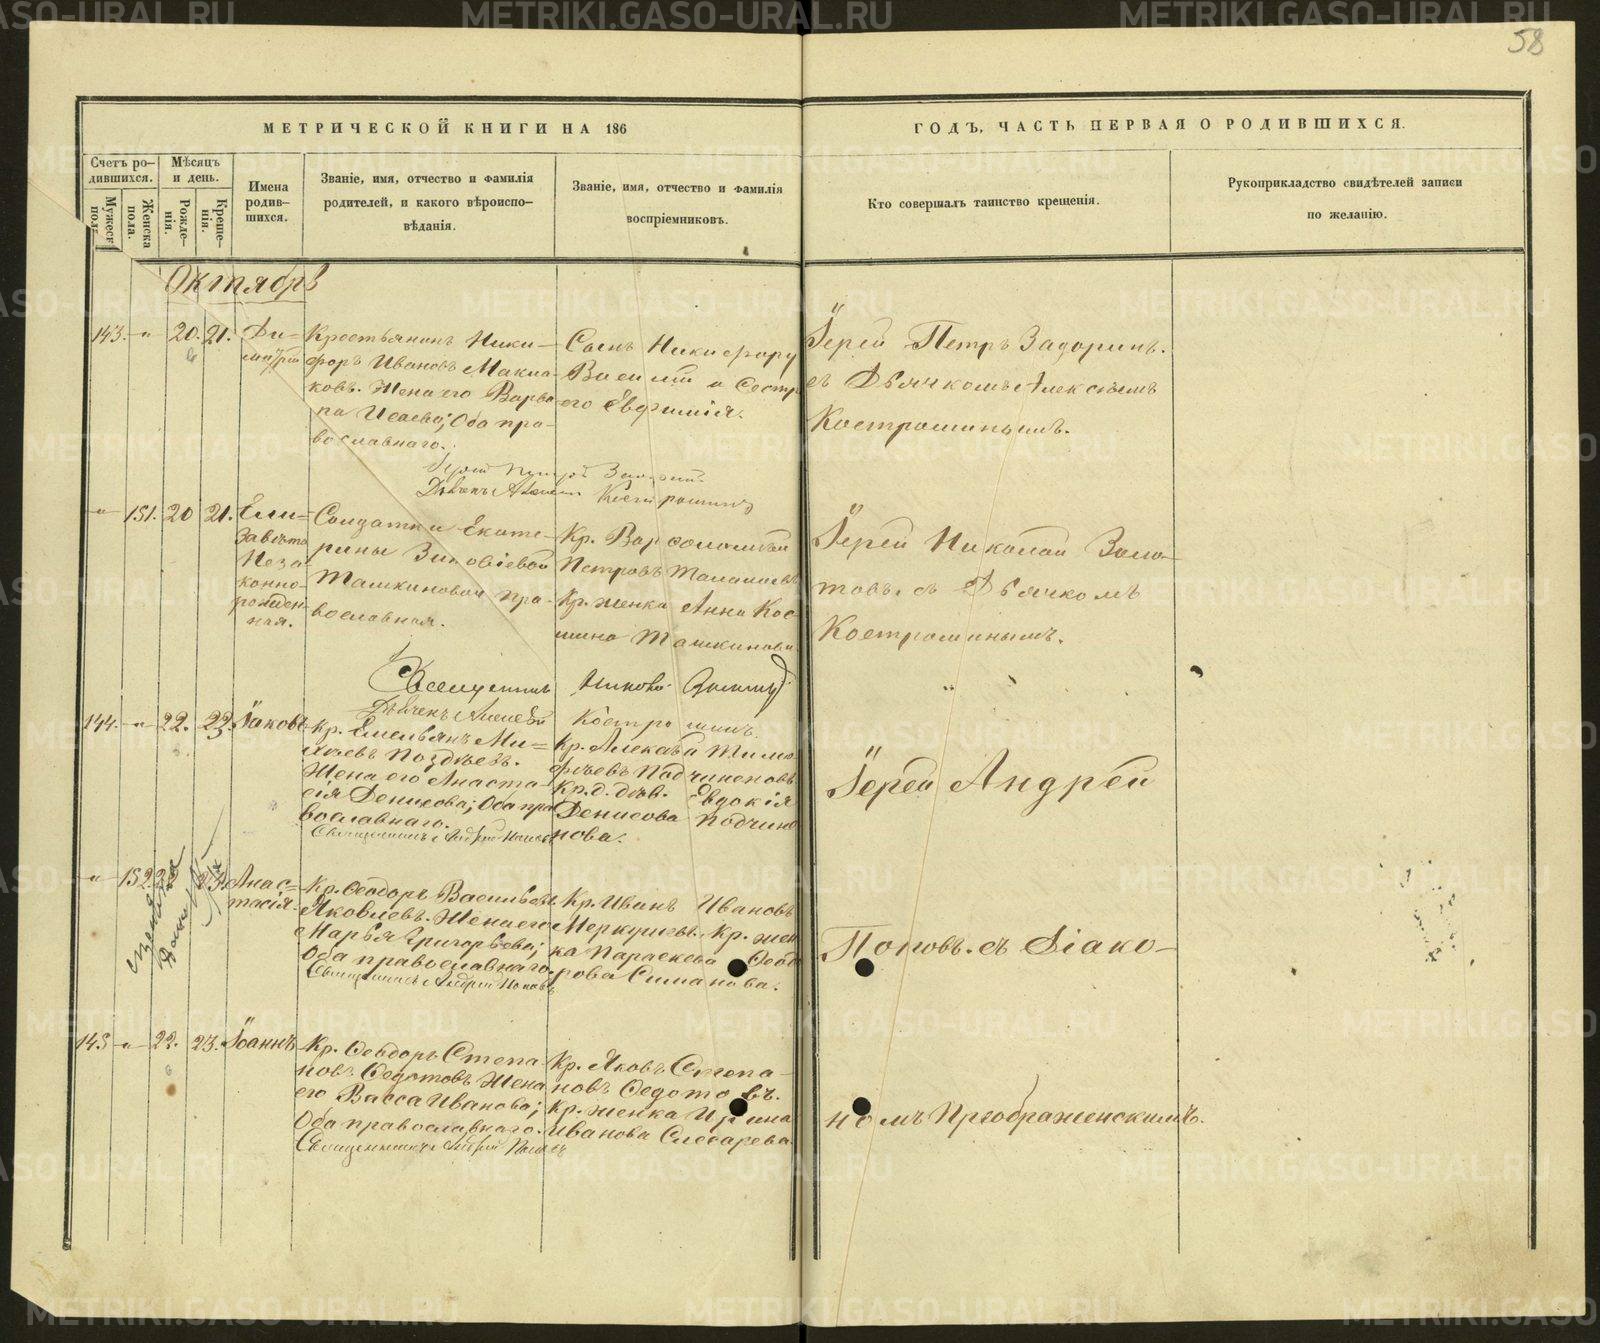 58
МЕТРИЧЕСКОЙ КНИГИ НА 186
ГОДЪ, ЧАСТЬ ПЕРВАЯ О РОДИВШИХСЯ.
Счетъ ро-
дившихся.
Мужеск
пол
Женска
пола.
Мѣсяцъ
и день.
Рожде-
нія.
Креще-
нія.
Имена
родив-
шихся.
Званіе, имя, отчество и фамилія
родителей, и какого вѣроиспо-
вѣданія.
Званіе, имя, отчество и фамилія
воспріемниковъ.
Кто совершалъ таинство крещенія.
Рукоприкладство свидѣтелей записи
по желанію.
Октябрь
143. " 20. 21.
Ди-
митрій
Крестьянинъ Ники-
форъ Ивановъ
ковъ. Жена его Варва-
ра Исаева; Оба пра-
вославнаго.
Сынъ Никифору
Василій и Сестра
его Евфимія.
Іерей Петръ Задоринъ.
съ Дьячкомъ Алексѣемъ
Костроминымъ.
Костроминъ
" 151. 20 21.
Ели-
завета
Неза-
конно-
рожден-
ная.
Солдатки Екате-
рины Зиновіевой
Ташкиновой пра-
вославная.
Кр. Варфоломей
Петровъ
Кр. женка Анна
Ташкинова
Іерей Николай Золо-
товъ. съ Дьячкомъ
Костроминымъ.
Священникъ Николай
Дьячекъ Алексей Костроминъ.
144. " 22. 23. Іаковъ
Кр. Емельянъ Ми-
хѣевъ Поздѣевъ.
Жена его Анаста-
сія Денисова; Оба пра
вославнаго.
Священникъ Андрей Поповъ
Кр. Алексѣй Тимо
фѣевъ Подчиненовъ
Кр. д. дѣв. Евдокія
Денисова Подчине
нова.
Іерей Андрей
" 152. 22 23
Анас-
тасія.
Кр. Ѳеодоръ Васильевъ
Яковлевъ. Жена его
Марья Григорьева;
Оба православнаго.
Священникъ Андрей Поповъ
Кр. Иванъ Ивановъ
Меркушевъ. Кр. жен
ка Параскева Ѳеодо
рова Симанова.
Поповъ. съ Діако-
145 " 22. 23. Іоаннъ
Кр. Ѳеодоръ Степа-
новъ Ѳедотовъ Жена
его Васса Иванова;
Оба православнаго.
Священникъ Андрей Поповъ
Кр. Яковъ Степа-
новъ Ѳедотовъ.
Кр. женка Ирина
Иванова Слесарева.
номъ Преображенскимъ.
METRIKI.GASO-URAL.RU